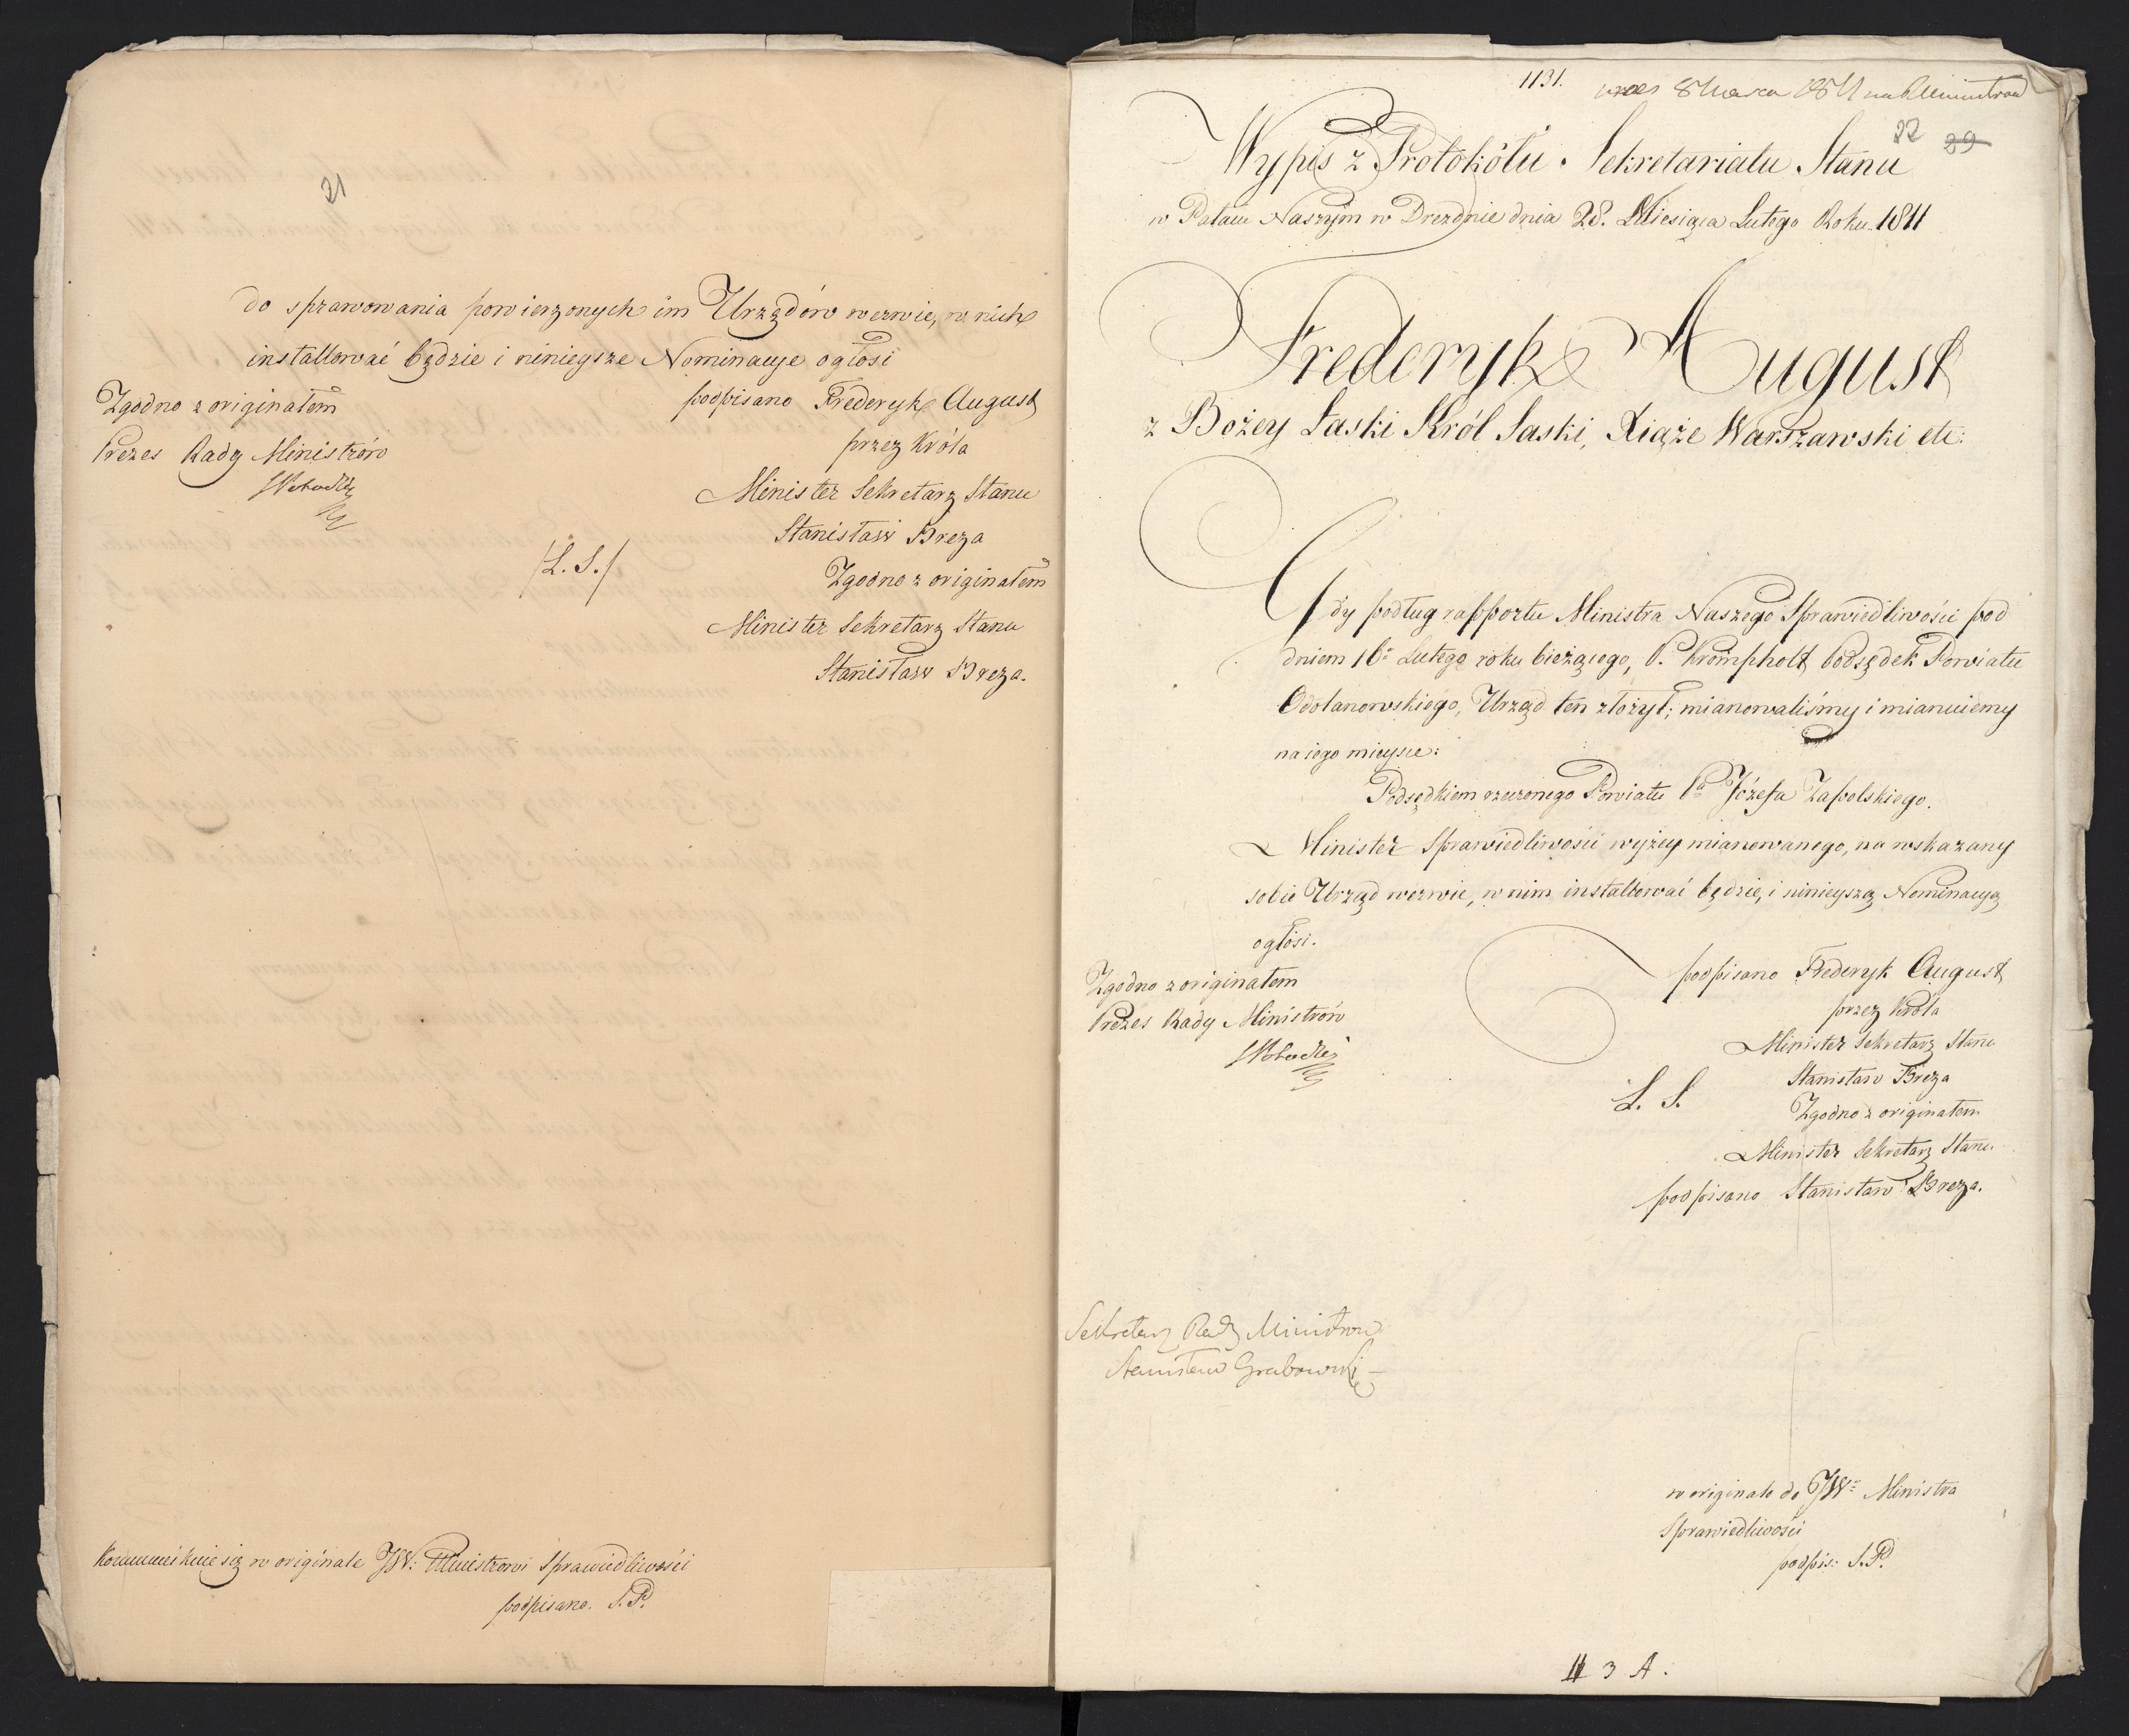 21
do sprawowania powierzonych im Urzędów wezwie, w nich
installować będzie i ninieysze Nominacye ogłosi
podpisano Frederyk August
przez Króla
Minister Sekretarz Stanu
Stanisław Breza
/L. S./
Zgodno z originałem
Minister Sekretarz Stanu
Stanisław Breza.
Zgodno z originałem
Prezes Rady Ministrów
Kommunikuie się w originale JW: Ministrowi Sprawiedliwości
podpisano. S.P.
1131.
8 Marca
22 29
Wypis z Protokółu Sekretariatu Stanu
w Pałacu Naszym w Dreznie dnia 28. Miesiąca Lutego Roku 1811
Frederyk August
z Bożey Łaski Król Saski, Xiąże Warszawski etc:
Gdy podług rapportu Ministra Naszego Sprawiedliwości pod
dniem 16. Lutego roku bieżącego, P. Krompholt Podsędek Powiatu
Odolanowskiego, Urząd ten złożył; mianowaliśmy i mianuiemy
na iego mieysce:
Podsędkiem rzeczonego Powiatu Pa Józefa Zapolskiego.
Minister Sprawiedliwości wyżey mianowanego, na wskazany
sobie Urząd wezwie, w nim installować będzie, i ninieyszą Nominacyą
ogłosi.
podpisano Frederyk August
przez Króla
Minister Sekretarz Stanu
Stanisław Breza
L. S.
Zgodno z originałem
Minister Sekretarz Stanu
podpisano Stanisław Breza.
Zgodno z originałem
Prezes Rady Ministrów
Sekretarz Rady Ministrów
Stanisław Grabowski
w originale do JWo Ministra
Sprawiedliwości
podpis: S.P.
3 A.